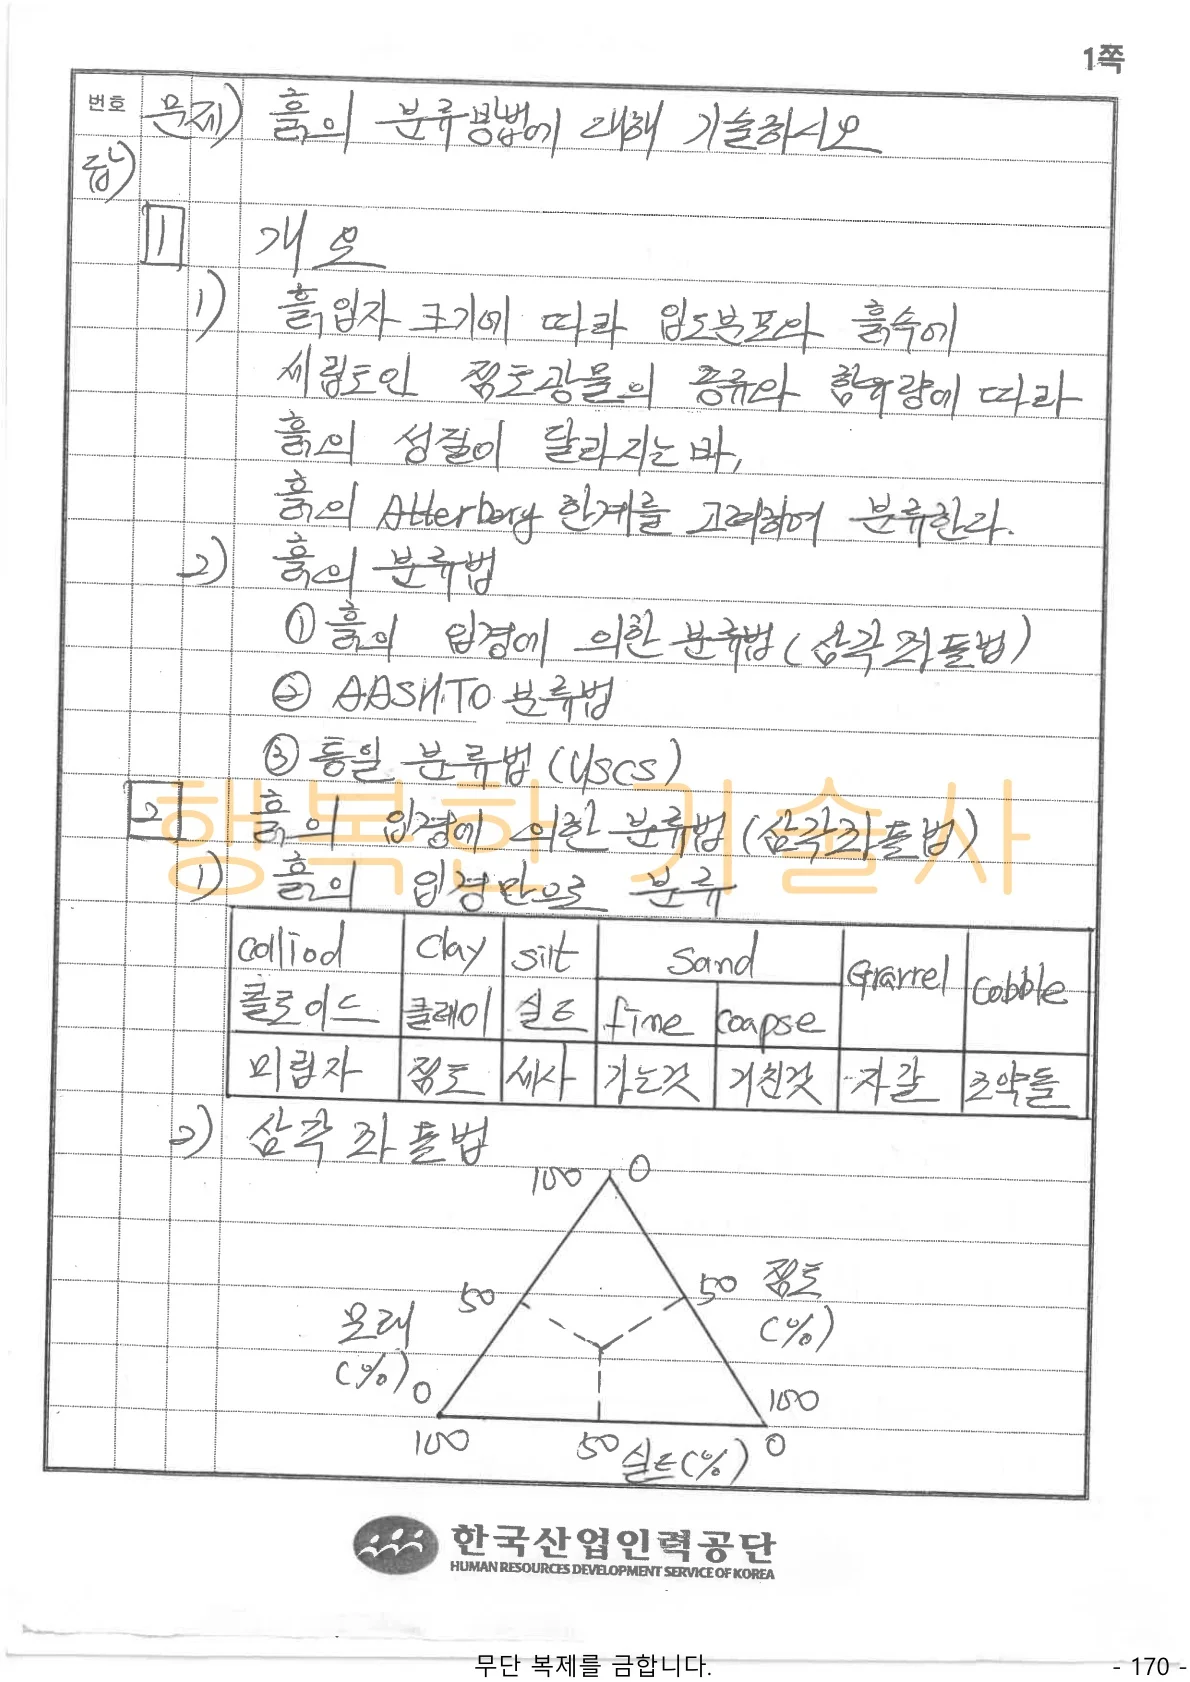 1쪽
번호 문제) 흙의 분류방법에 대해 기술하시오
답)
1 개요
1) 흙입자 크기에 따라 입도분포와 흙속에
세립토인 점토광물의 종류와 함유량에 따라
흙의 성질이 달라지는바,
흙의 Atterberg 한계를 고려하여 분류한다.
2) 흙의 분류법
① 흙의 입경에 의한 분류법 (삼각좌표법)
② AASHTO 분류법
③ 통일 분류법 (USCS)
2 흙의 입경에 의한 분류법 (삼각좌표법)
행복한 기술사
1) 흙의 입경만으로 분류
colliod clay silt Sand Grarrel cobble
콜로이드 클레이 실트 fine coapse
미립자 점토 세사 가는것 거친것 자갈 조약돌
2) 삼각좌표법
100 0
50 50 점토
모래 (%)
(%) 0 100
100 50 실트(%) 0
한국산업인력공단
HUMAN RESOURCES DEVELOPMENT SERVICE OF KOREA
무단 복제를 금합니다. - 170 -